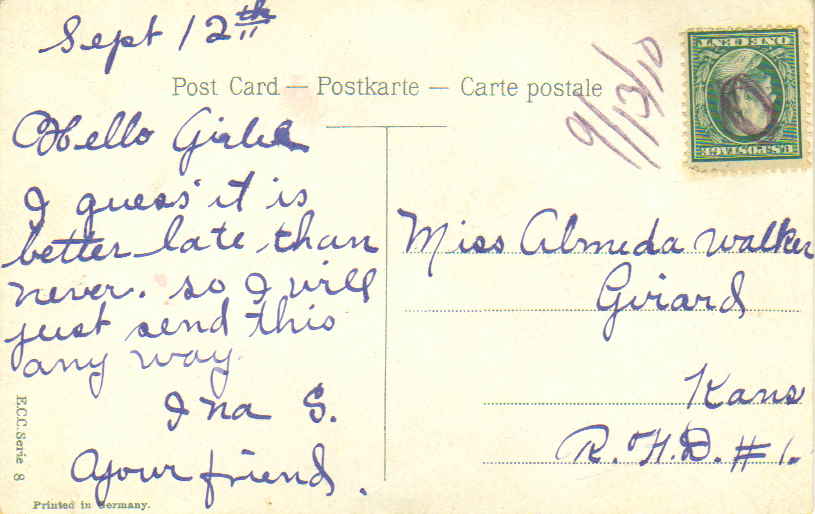 Sept 12th
Post Card — Postkarte — Carte postale
9/13/10
ONE CENT
U.S. POSTAGE
Hello Girlie
I guess it is
better late than
never. so I will
just send this
any way
Ina S.
Your friend.
Miss Almeda Walker
Girard
Kans
R.F.D. #1.
E.C.C. Serie 8
Printed in Germany.